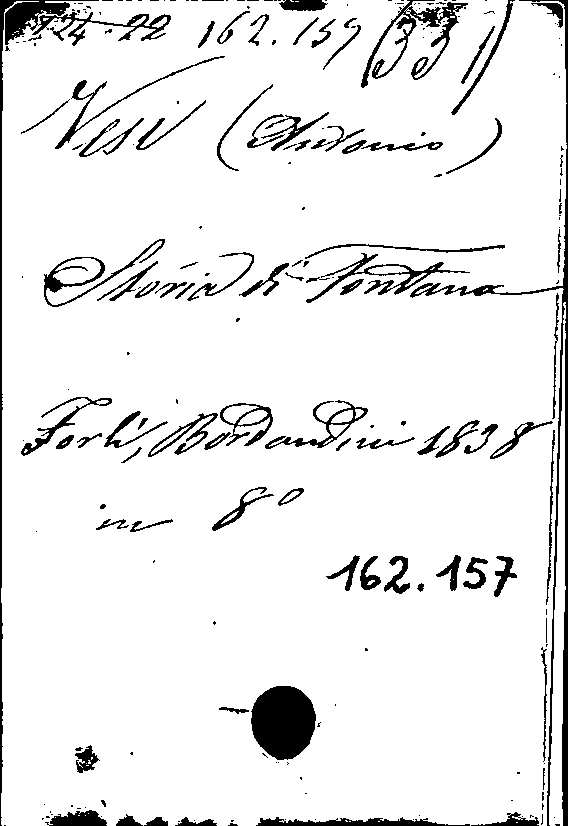 124.22 162.157 (331)
Vesi (Antonio)
Storia di Fontana
Forlì, Bordandini 1838
in 8º
162.157